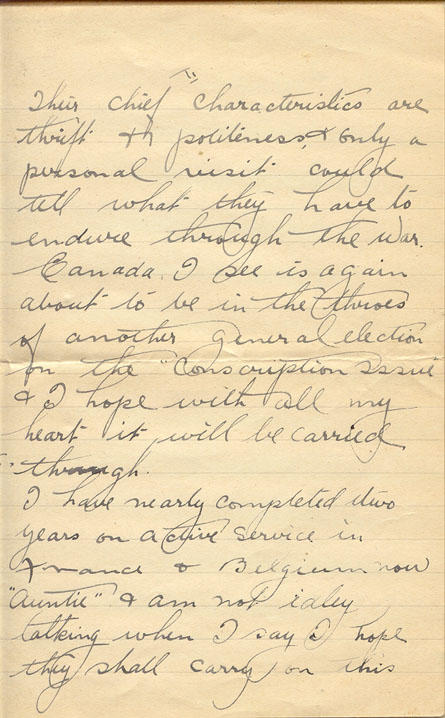 II
Their chief characteristics are
thrift & politeness, & only a
personal visit could
tell what they have to
endure through the war.
Canada, I see is again
about to be in the throes
of another general election
on the "Conscription Issue
& I hope with all my
heart it will be carried
through.
I have nearly completed two
years on active service in
France & Belgium now
"Auntie" & am not idley
talking when I say I hope
they shall carry on this